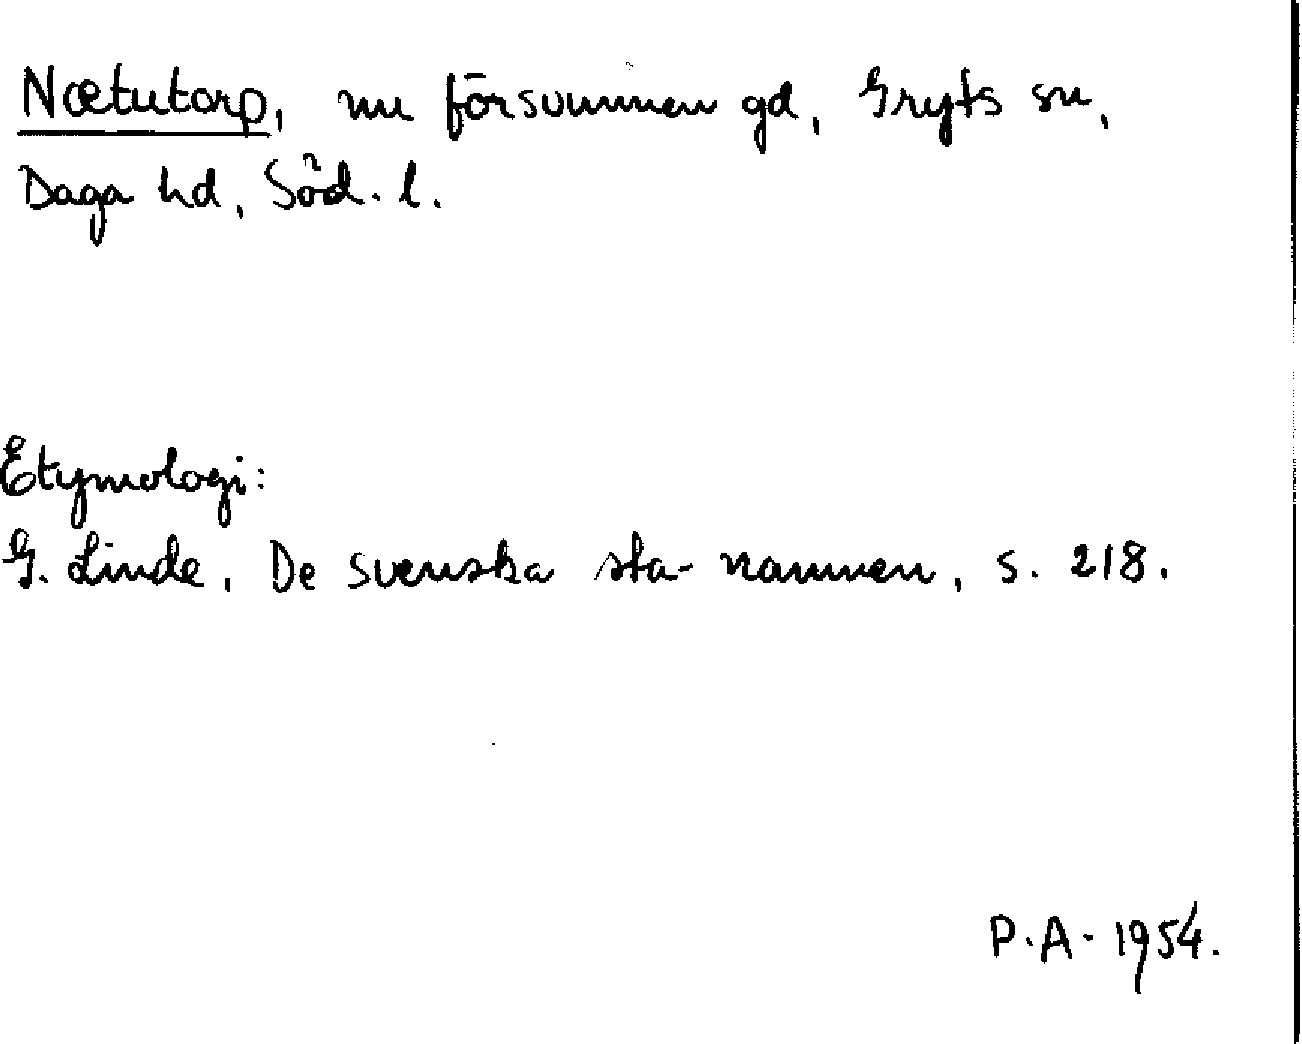 Nætutorp, nu försvunnen gd, Gryts sn,
Daga hd, Söd. l.
Etymologi:
G. Linde, De svenska sta-namnen, s. 218.
P.A. 1954.